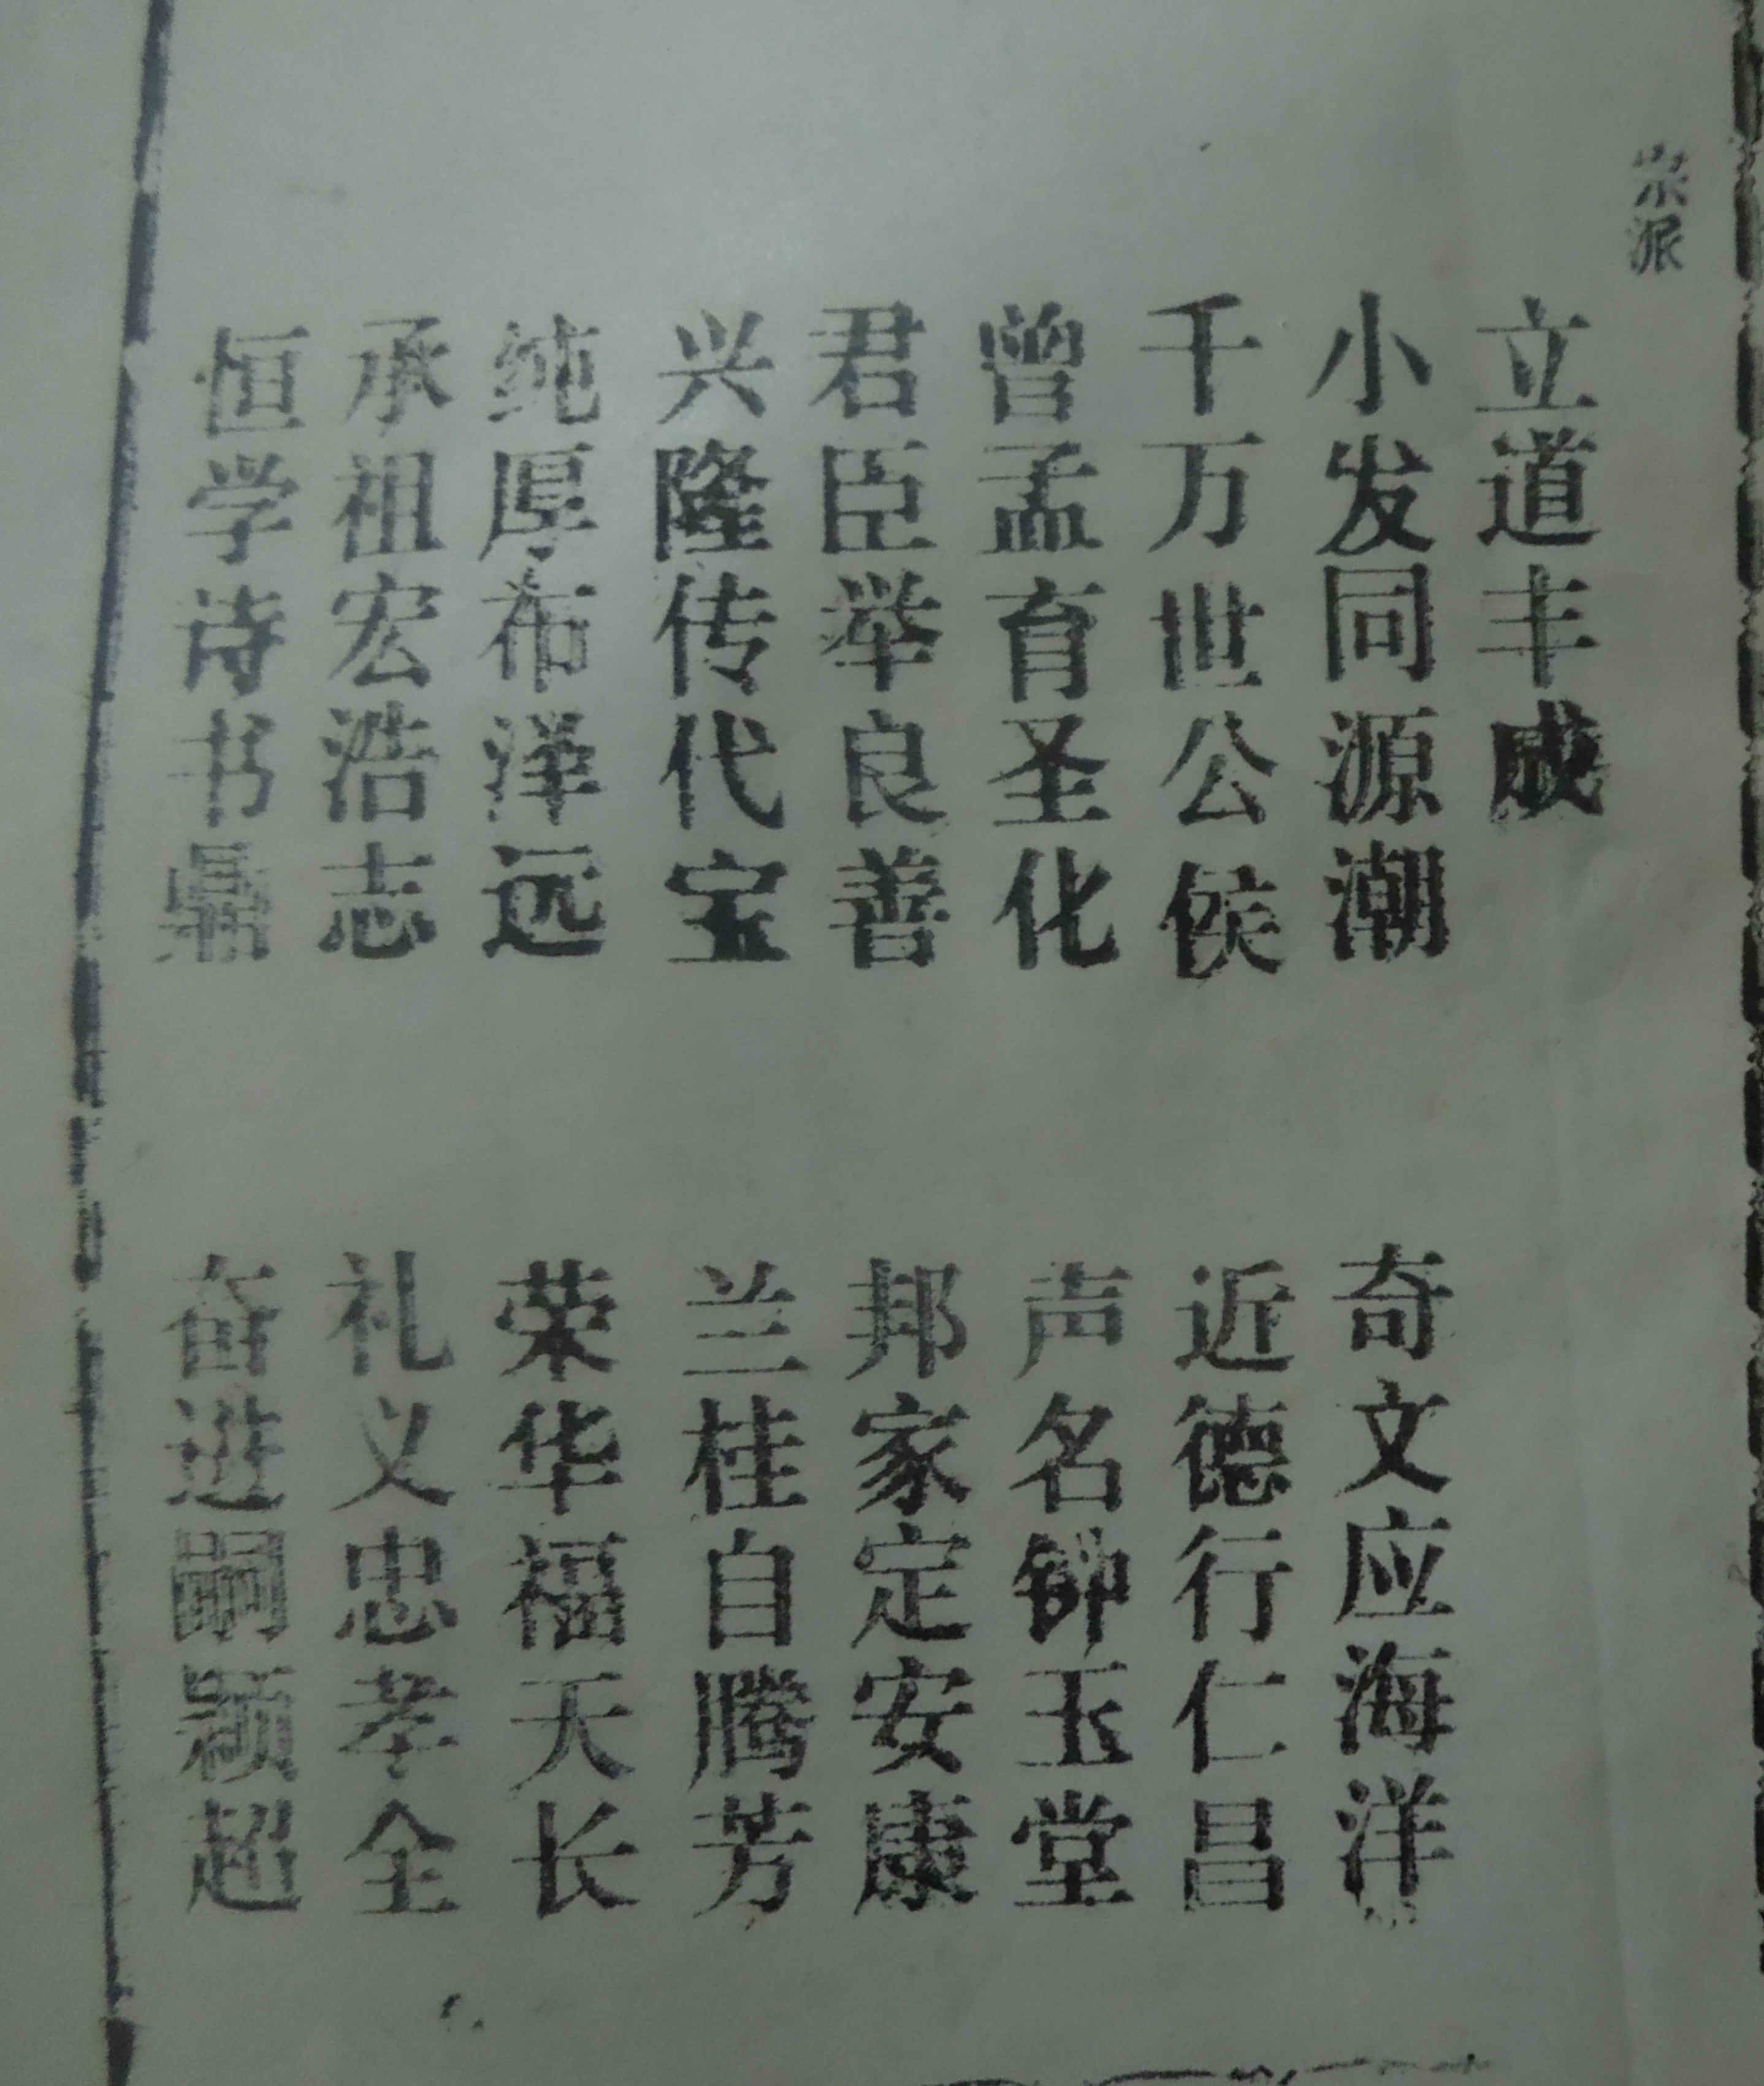 宗派
立道丰成
小发同源潮
奇文应海洋
千万世公侯
近德行仁昌
曾孟育圣化
声名钟玉堂
君臣举良善
邦家定安康
兴隆传代宝
兰桂自腾芳
纯厚布泽远
荣华福天长
承祖宏浩志
礼义忠孝全
恒学诗书鼎
奋进嗣颖超